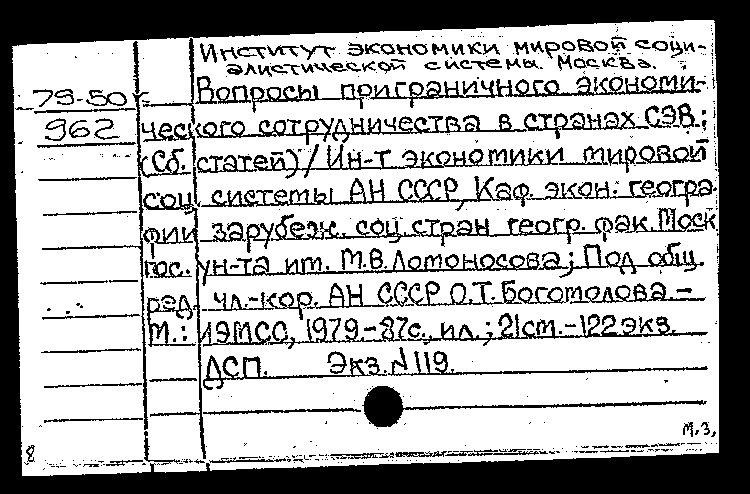 Институт экономики мировой соци-
алистической системы. Москва.
79-50г. Вопросы приграничного экономи-
962 ческого сотрудничества в странах СЭВ.;
(Сб. статей)/Ин-т экономики мировой
соц. системы АН СССР, Каф. экон. геогра-
фии зарубеж. соц. стран геогр. фак. Моск
гос. ун-та им. М.В.Ломоносова; Под общ.
ред. чл.-кор. АН СССР О.Т.Богомолова.-
М.: ИЭМСС, 1979.-87с., ил.; 21см.-122экз.
ДСП. Экз.№119.
М.З.
8